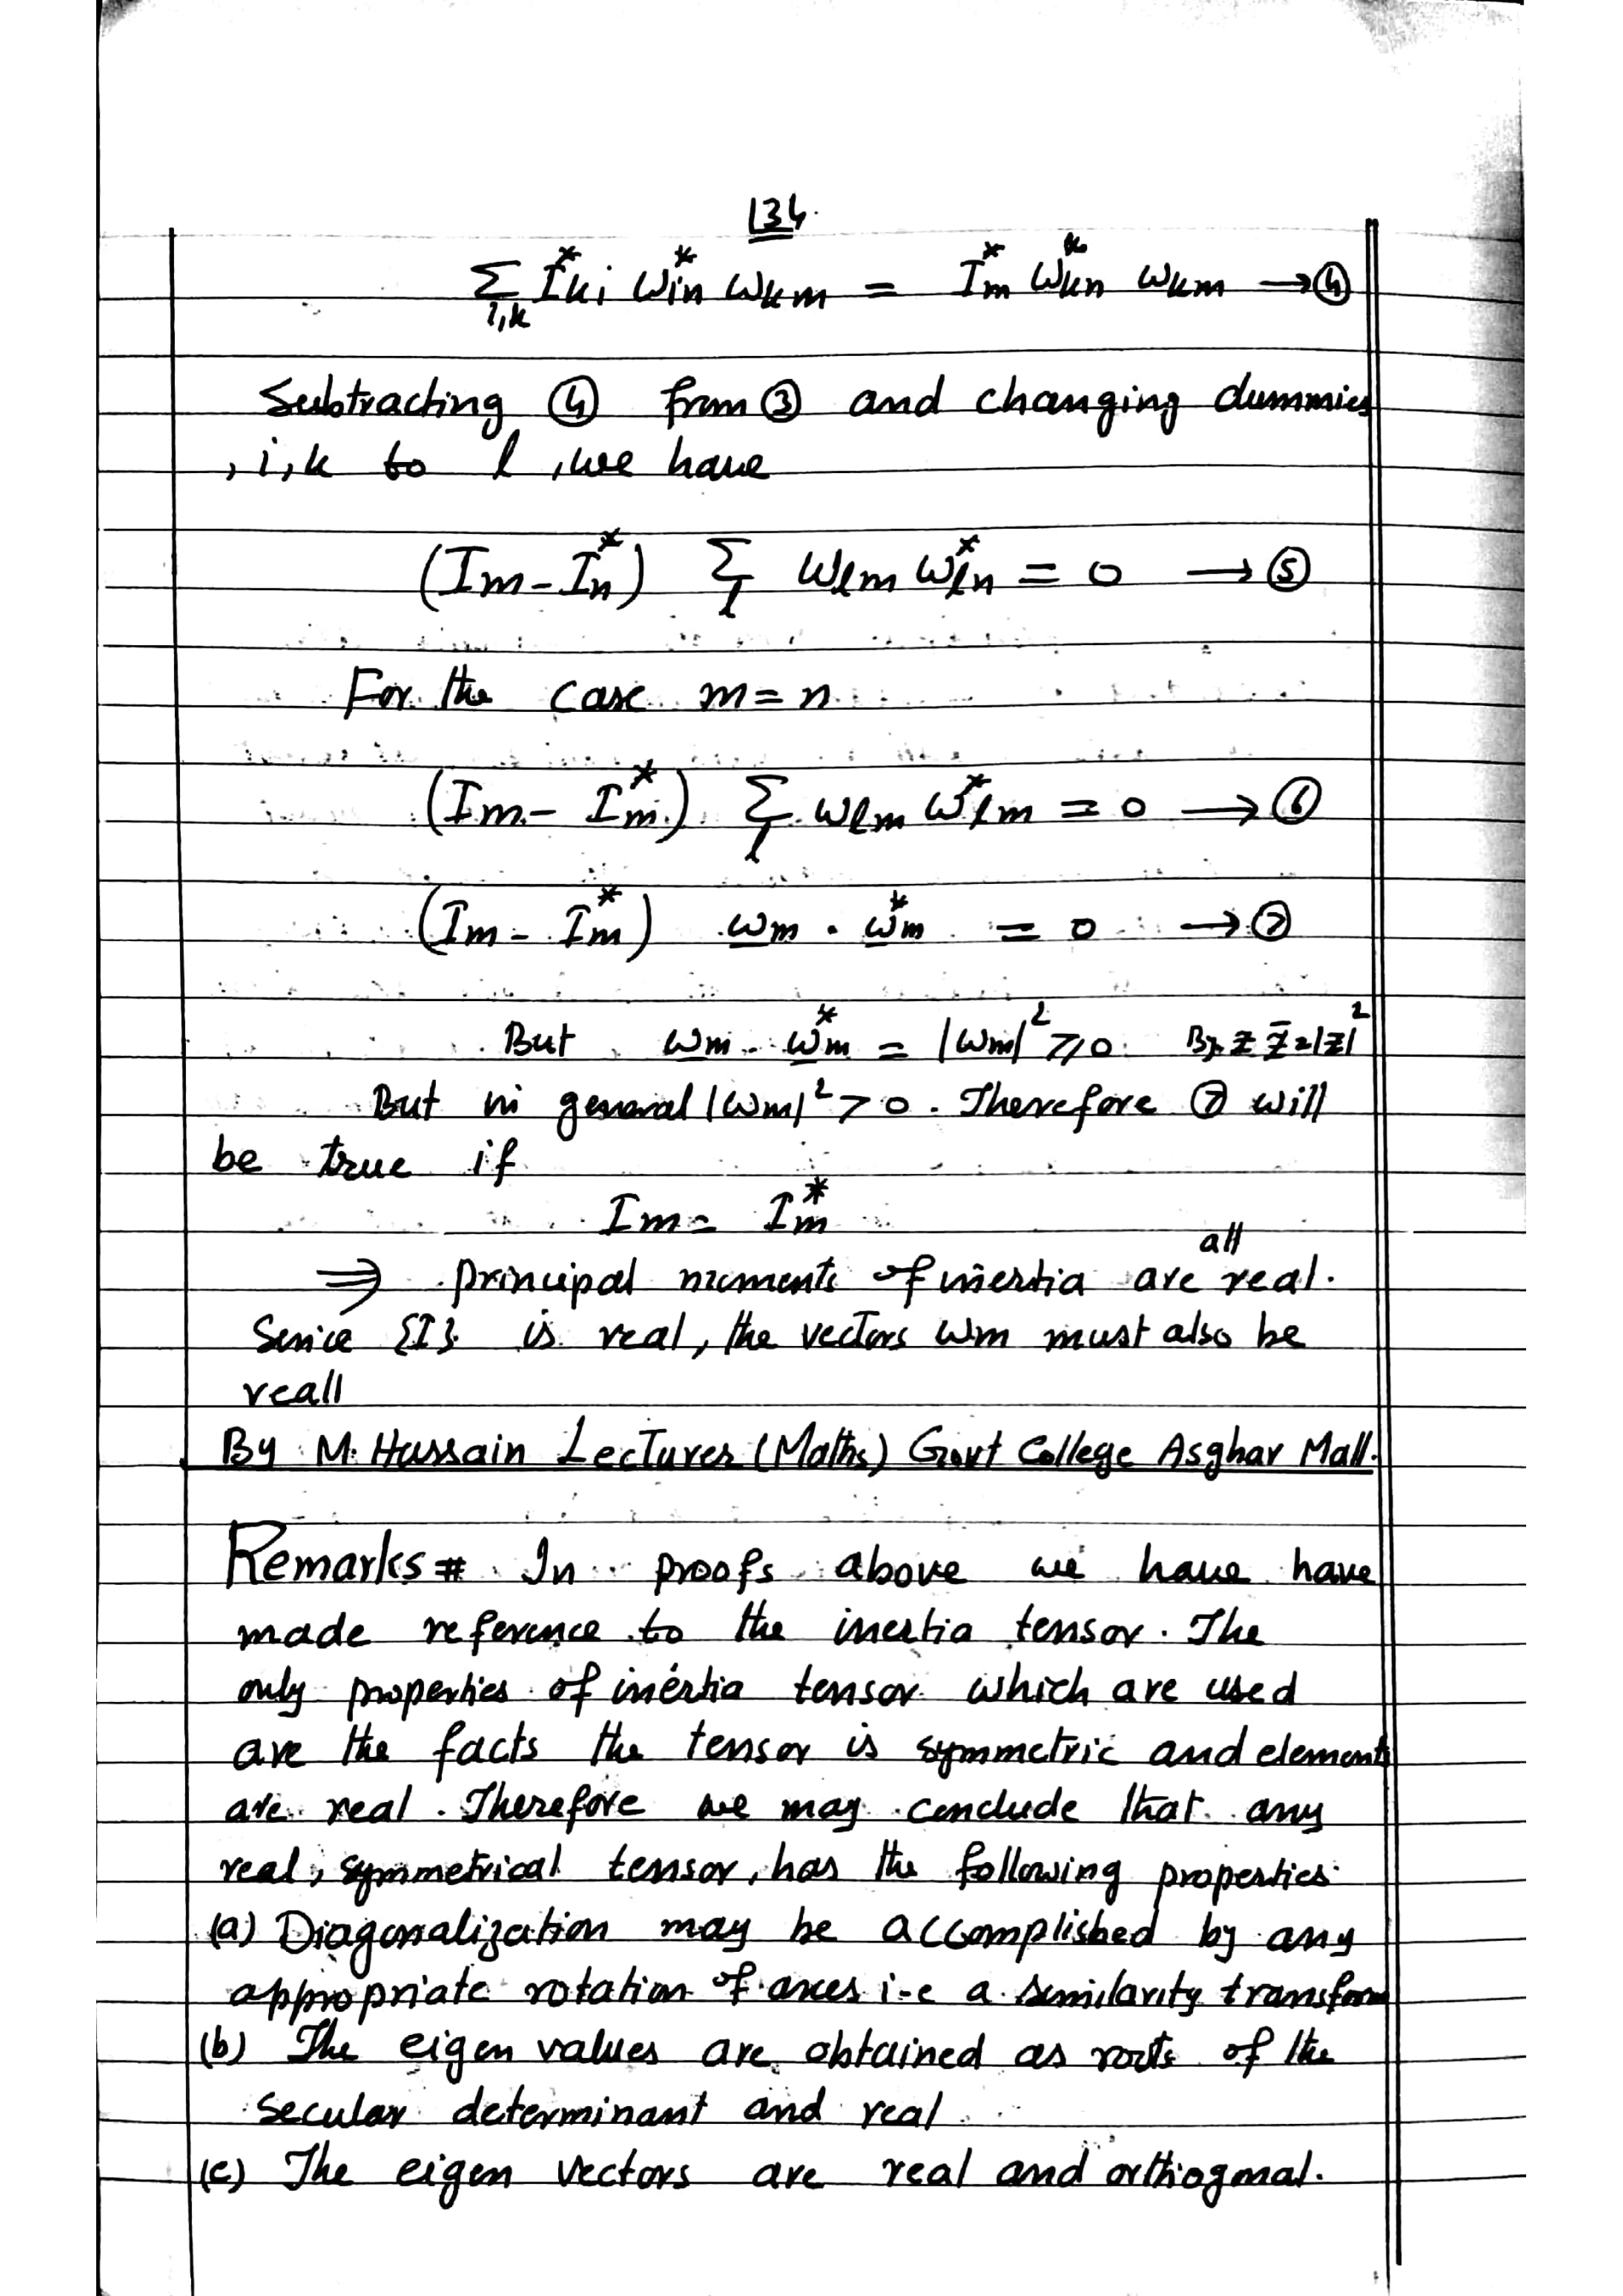 134.
Σ I*ki ω*in ωkm = I*m ω*kn ωkm → ④
i,k
Subtracting ④ from ③ and changing dummies
, i,k to l, we have
(Im - I*n) Σ ωlm ω*ln = 0 → ⑤
l
For the case m = n
(Im - I*m) Σ ωlm ω*lm = 0 → ⑥
l
(Im - I*m) ωm · ω*m = 0 → ⑦
But ωm · ω*m = |ωm|² ≥ 0 By z z̄ = |z|²
But in general |ωm|² > 0. Therefore ⑦ will
be true if
Im = I*m
all
⇒ principal moments of inertia are real.
Since {I} is real, the vectors ωm must also be
reall
By M. Hussain Lecturer (Maths) Govt College Asghar Mall.
Remarks # In proofs above we have have
made reference to the inertia tensor. The
only properties of inertia tensor which are used
are the facts the tensor is symmetric and elements
are real. Therefore we may conclude that any
real, symmetrical tensor, has the following properties
(a) Diagonalization may be accomplished by any
appropriate rotation of axes i-e a similarity transform
(b) The eigen values are obtained as roots of the
secular determinant and real
(c) The eigen vectors are real and orthogonal.